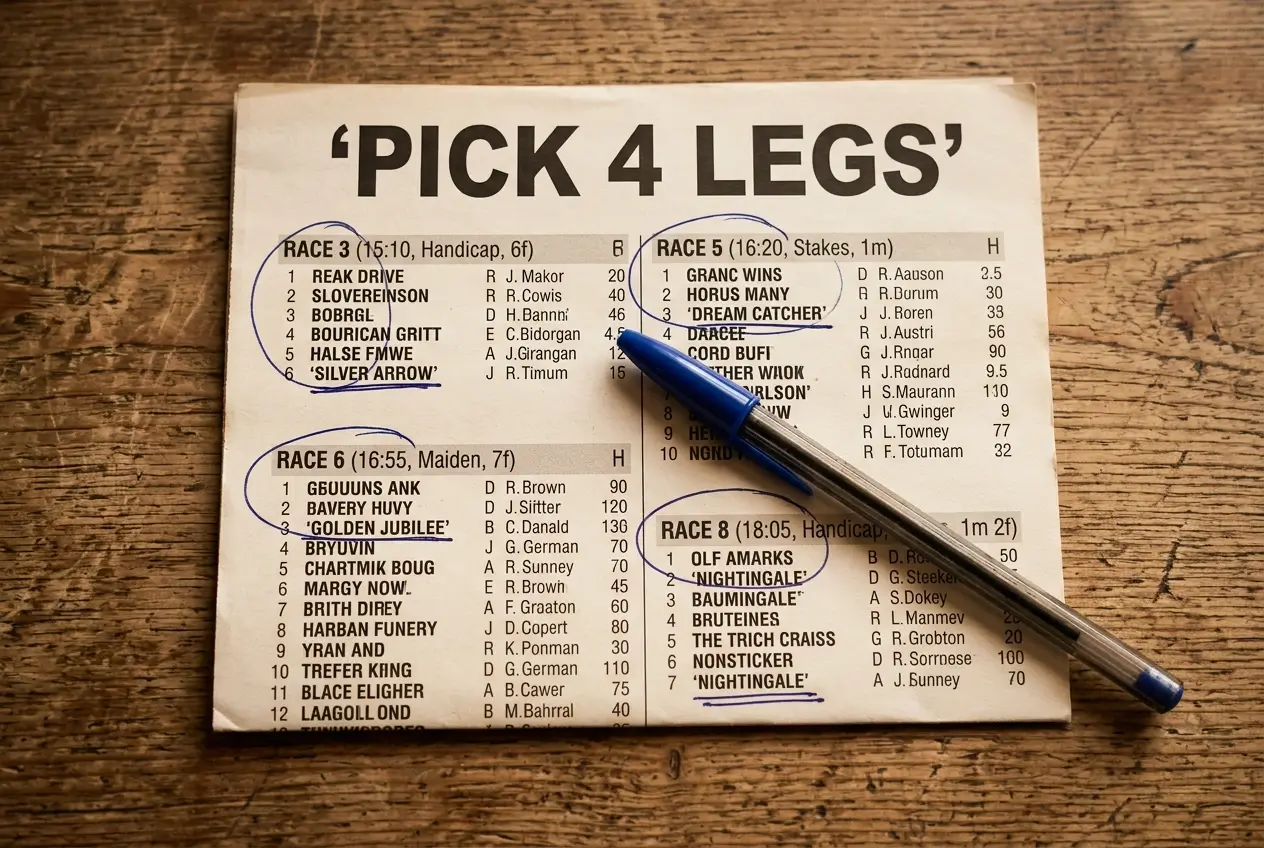 ‘PICK 4 LEGS’
RACE 3 (15:10, Handicap, 6f) B
1 REAK DRIVE R J. Makor 20
2 SLOVEREINSON R R. Cowis 40
3 BOBRGL D H. Bannn' 46
4 BOURICAN GRITT E C. Bidorgan
5 HALSE FMWE A J. Girangan 12
6 ‘SILVER ARROW’ J R. Timum 15
RACE 6 (16:55, Maiden, 7f) H
1 GBUUUNS ANK D R. Brown 90
2 BAVERY HUVY D J. Siitter 120
3 ‘GOLDEN JUBILEE’ B C. Danald 136
4 BRYUVIN J G. German 70
5 CHARTMIK BOUG A R. Sunney 70
6 MARGY NOW. E R. Brown 45
7 BRITH DIREY A F. Graaton 60
8 HARBAN FUNERY J D. Copert 80
9 YRAN AND R K. Ponman 30
10 TREFER KIING D G. German 110
11 BLACE ELIGHER A B. Cawer 75
12 LAAGOLL OND B M. Bahrral 40
RACE 5 (16:20, Stakes, 1m) H
1 GRANC WINS D R. Aauson 2.5
2 HORUS MANY R R. Durum 30
3 ‘DREAM CATCHER’ J J. Roren 33
4 DARCEE R J. Austri 56
CORD BUFI G J. Rnqar 90
R J. Radnard 9.5
H S. Maurann 110
8 J W. Gwinger 9
9 R L. Towney 77
10 R F. Totumam 32
RACE 8 (18:05, Handicap, 1m 2f)
1 OLF AMARKS B 50
2 ‘NIGHTINGALE’ D G. Steeker
3 BAUMINGALE’ A S. Dokey
4 BRUTEINES R L. Manmev
5 THE TRICH CRAISS G R. Grobton 20
6 NONSTICKER D R. Sorrnese 100
7 ‘NIGHTINGALE’ A J. Bunney 70